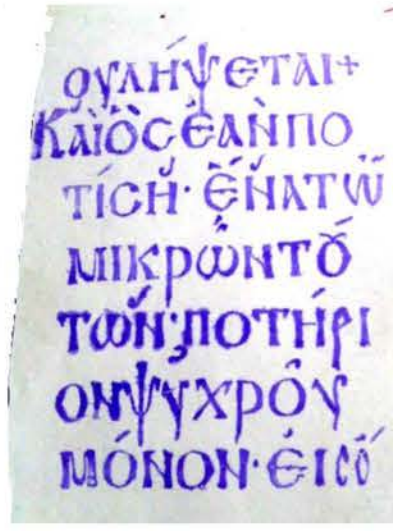 ΟΥΛΉΨΕΤΑΙ+
ΚΑῚὋϹἘᾺΝΠΟ
ΤΊϹΗ· ἝΝΑΤΩ
ΜΙΚΡΩ͂ΝΤΟΎ
ΤΩΝ· ΠΟΤΉΡΙ
ΟΝΨΥΧΡΟΥ͂
ΜΌΝΟΝ·ἘΙϹΌ